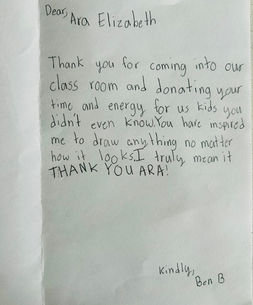 Dear, Ara Elizabeth
Thank you for coming into our
class room and donating your
time and energy for us kids you
didn't even know.You have inspired
me to draw anything no matter
how it looks.I truly mean it
THANK YOU ARA!
Kindly,
Ben B